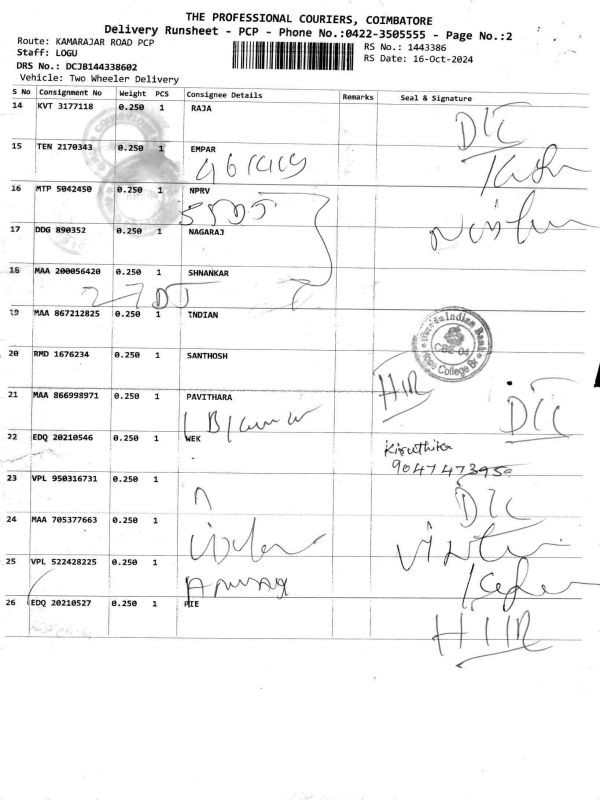 THE PROFESSIONAL COURIERS, COIMBATORE
Delivery Runsheet - PCP - Phone No.:0422-3505555 - Page No.:2
Route: KAMARAJAR ROAD PCP
RS No.: 1443386
Staff: LOGU
RS Date: 16-Oct-2024
DRS No.: DCJB144338602
Vehicle: Two Wheeler Delivery
S No Consignment No Weight PCS Consignee Details Remarks Seal & Signature
14 KVT 3177118 0.250 1 RAJA
DIC
15 TEN 2170343 0.250 1 EMPAR
16 MTP 5042450 0.250 1 NPRV
17 DDG 890352 0.250 1 NAGARAJ
18 MAA 200056420 0.250 1 SHNANKAR
19 MAA 867212825 0.250 1 INDIAN
Indian Bank
CBE-04
College Br
20 RMD 1676234 0.250 1 SANTHOSH
HIR
21 MAA 866998971 0.250 1 PAVITHARA
DIC
22 EDQ 20210546 0.250 1 WEK
Kiruthika
23 VPL 950316731 0.250 1
DIC
24 MAA 705377663 0.250 1
25 VPL 522428225 0.250 1
26 EDQ 20210527 0.250 1 PIE
HIR